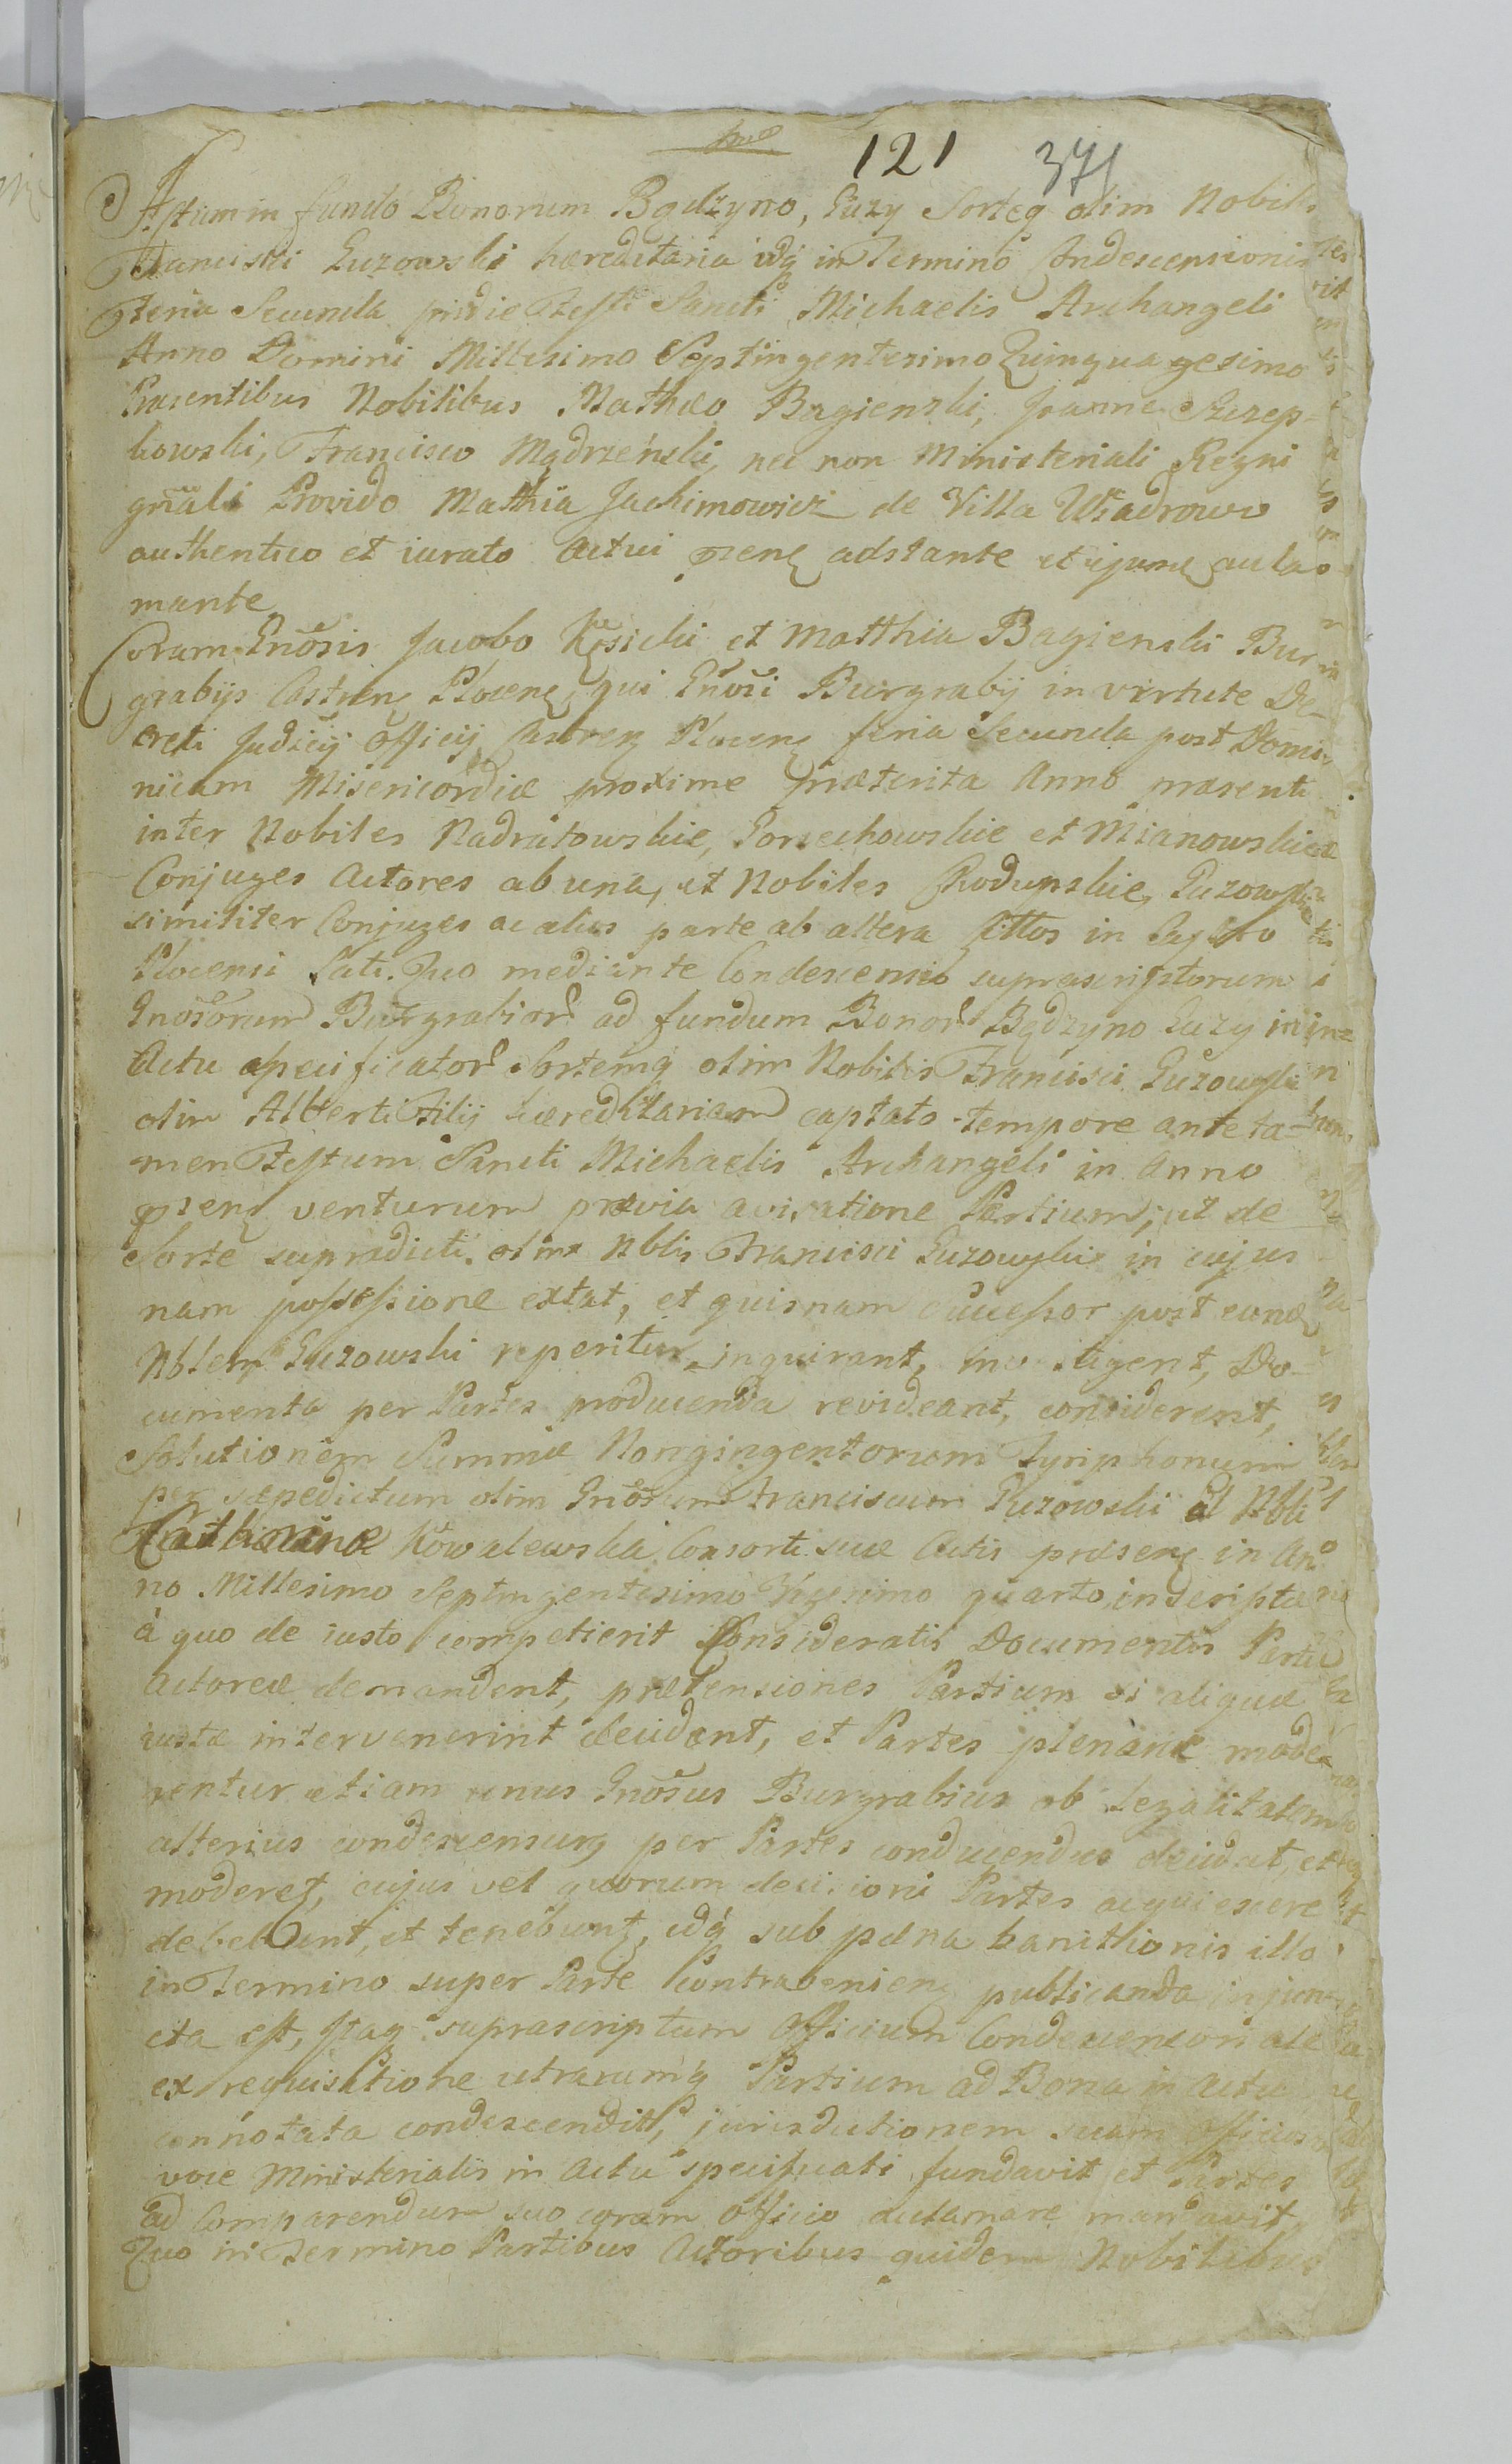 121 371
Actum in fundo Bonorum Bądzyno, Guzy Sorteq olim Nobilis
Francisci Guzowski hæreditaria idq in Termino Condescensionis
Feria Secunda pridie Festi Sancti Michaelis Archangeli
Anno Domini Millesimo Septingentesimo Quinquagesimo
Præsentibus Nobilibus Mathæo Bagienski, Joanne Szczep=
kowski, Francisco Mądrzeński, nec non Ministeriali Regni
gnali Provido Matthia Jachimowicz de Villa Uniadrowo
authentico et iurato Actui præsenq adstante et aclao
mante
Coram Gnosis Jacobo Kęsicki et Matthia Bagienski Bur
grabijs Castren Plocenq, qui Gnosi Burgrabij in virtute De=
creti Judicij Officij Castrenq Plocenq feria Secunda post Domi
nicam Misericordiæ proxime præterita Anno præsenti
inter Nobiles Nadratowskie, Gorzechowskie et Mianowskie
Conjuges Actores ab una, et Nobiles Chodupskie, Guzowskie
similiter Conjuges ac alios parte ab altera Cittos in Castro
Plocensi lati. Quo mediante Condescensio suprascriptorum
Gnosorum Burgrabior ad fundum Bonor Bądzyno Guzy in
Actu specificator Sortemq olim Nobilis Francisci Guzowski
olim Alberti Filij hæreditariam captato tempore ante ta=
men Festum Sancti Michaelis Archangeli in Anno
præsenq venturum prævia avisatione Partium, ut de
Sorte supradicti olim Nblis Francisci Guzowski in cujus
nam possessione extat, et quisnam successor post eund
Nblem Guzowski reperitur inquirant, investigent, Do=
cumenta per Partes producenda revideant, considerent,
Solutionem Summæ Nongingentorum Tynphonum
per sæpedictum olim Gnosum Franciscum Guzowski Nbli
Catharinæ Kowalewska Consorti suæ Actis præsenq in An
no Millesimo Septingentesimo Vigesimo quarto inscriptæ
à quo de iusto competierit Consideratis Documentis Partis
Actoreæ demandent, prætensiones Partium si aliquæ
iustæ intervenerint decidant, et Partes plenarie mode=
rentur etiam unus Gnosus Burgrabius ob legalitatem
alterius condescensurq per Partes conducendus decidat, et
moderet, cujus vel quorum decisioni Partes acquiescere
debebunt, et tenebunt, idq sub pæna banitionis illo
in Termino super Parte Contravenienq publicanda injun
cta est, Itaq suprascriptum Officium Condescensionale
ex requisitione utrarumq Partium ad Bona in Actu
connotata condescendit, jurisdictionem suam Officiosam
voce Ministerialis in Actu specificati fundavit et Partes
ad Comparendum suo coram Officio acclamare mandavit
Quo in Termino Partibus Actoribus quidem Nobilibus